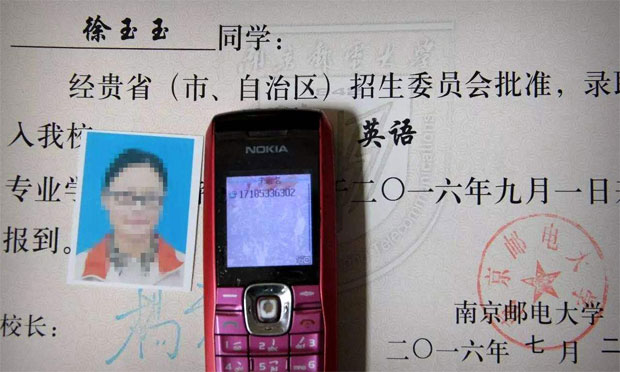 徐玉玉 同学:
经贵省（市、自治区）招生委员会批准，录取
入我校 英语
专业学 二〇一六年九月一日
报到。
NOKIA
17185336302
校长：
南京邮电大学
南京邮电大学
二〇一六年 七月 二